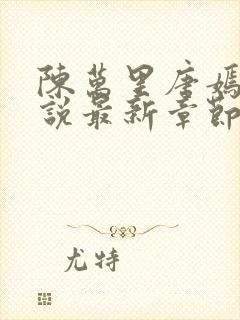 陳萬里唐嫣
說最新章節
尤特